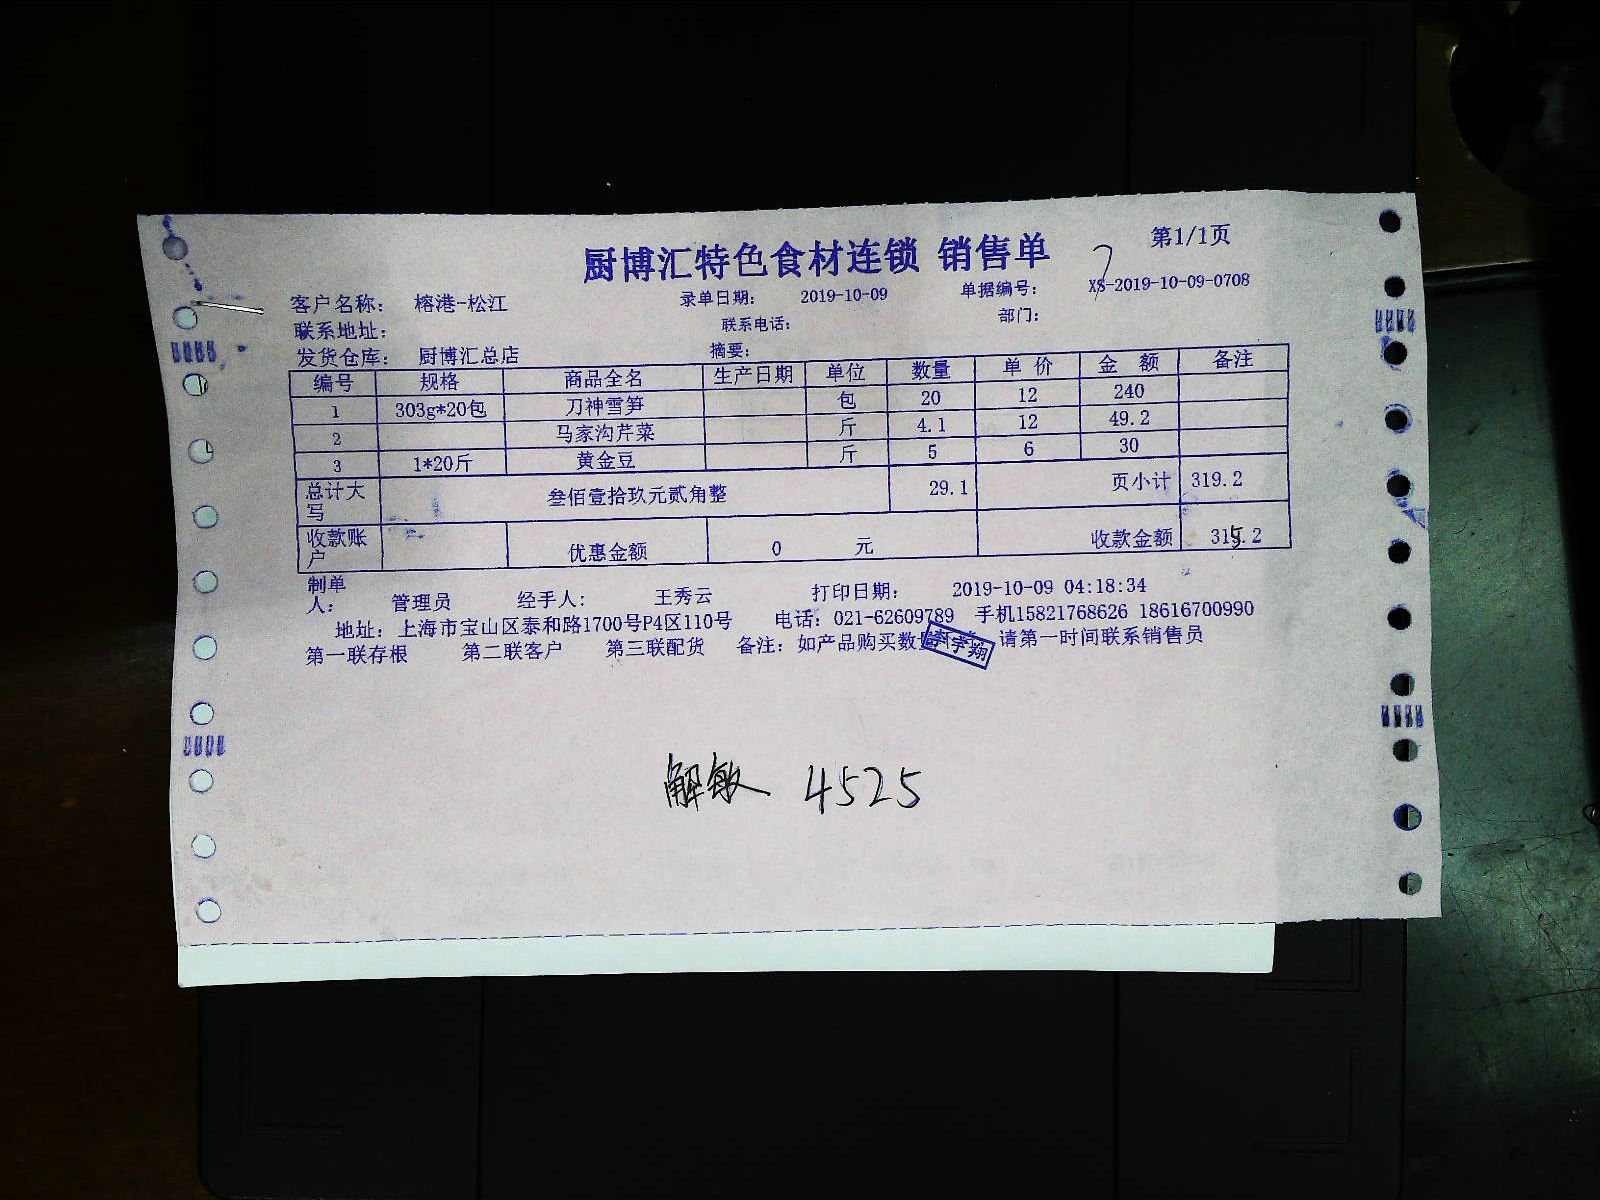 厨博汇特色食材连锁 销售单
第1/1页
客户名称: 榕港-松江 录单日期: 2019-10-09 单据编号: XS-2019-10-09-0708
联系地址: 联系电话: 部门:
发货仓库: 厨博汇总店 摘要:
编号 规格 商品全名 生产日期 单位 数量 单价 金额 备注
1 303g*20包 刀神雪笋 包 20 12 240
2 马家沟芹菜 斤 4.1 12 49.2
3 1*20斤 黄金豆 斤 5 6 30
总计大写 叁佰壹拾玖元贰角整 29.1 页小计 319.2
收款账户 优惠金额 0 元 收款金额 315.2
制单人: 管理员 经手人: 王秀云 打印日期: 2019-10-09 04:18:34
地址: 上海市宝山区泰和路1700号P4区110号 电话: 021-62609789 手机15821768626 18616700990
第一联存根 第二联客户 第三联配货 备注: 如产品购买数 请第一时间联系销售员
宇翔
解敏 4525